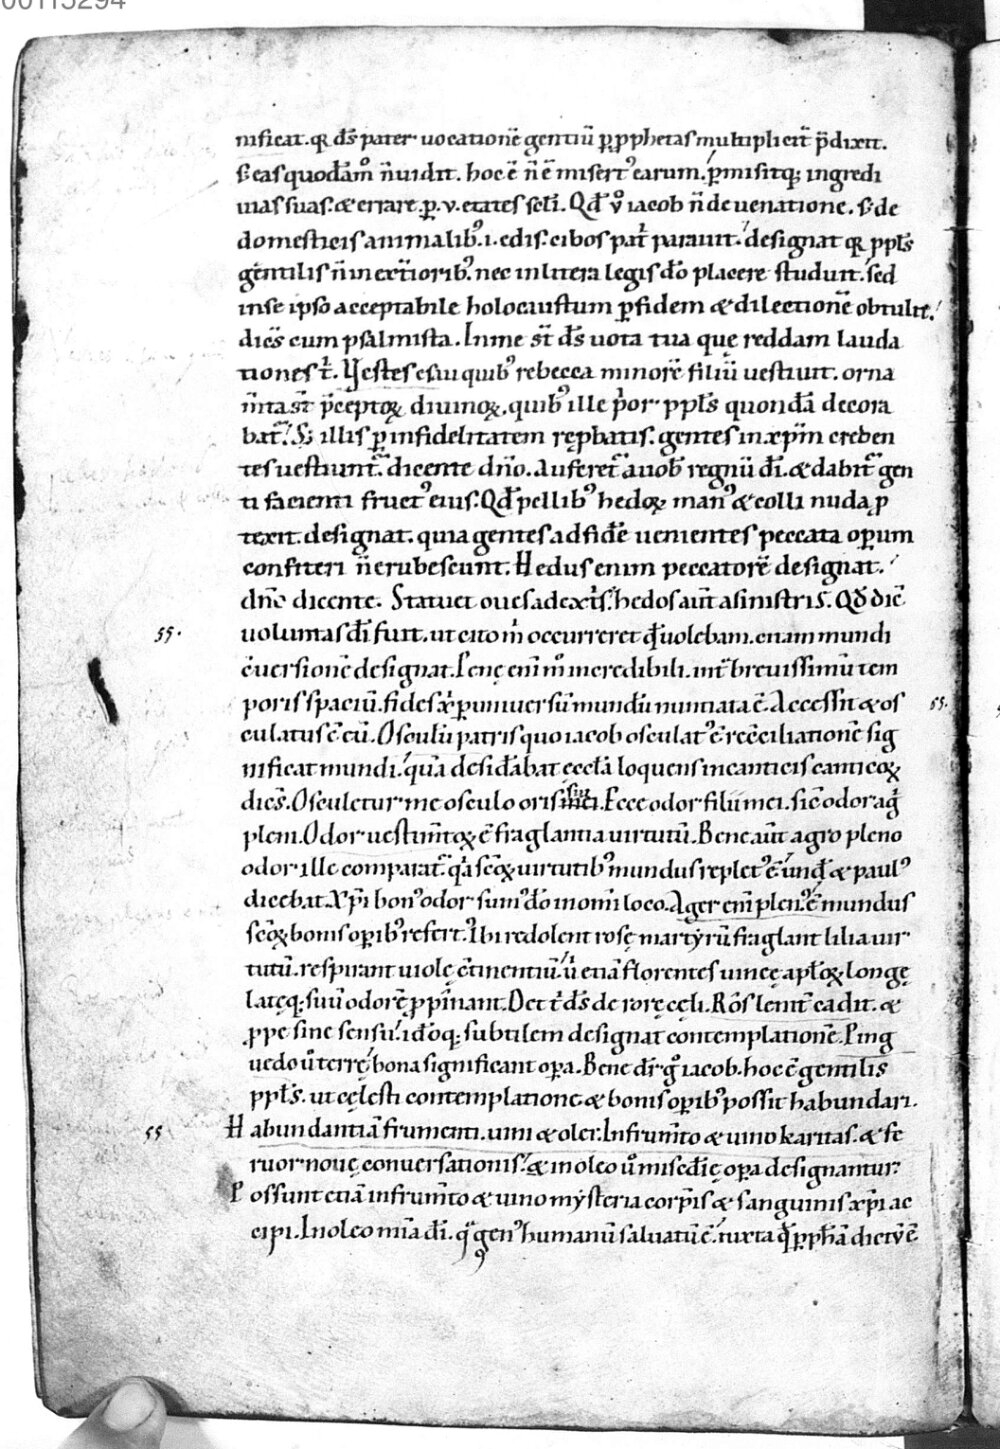 00113294
nificat. qꝛ ds̄ pater uocationē gentiū ꝑ ꝓphetas multiplicit̄ p̄dixit.
s; eas quodāmᵒ n̄ uidit. hoc ē n̄ ē misertꝰ earum. ꝑmisitq; ingredi
uias suas. & errare. ꝑ .v. etates sc̄li. Qđ v̊ iacob n̄ de uenatione. s; de
domesticis animalibꝰ .i. edis. cibos pat̓ parauit. designat qꝛ ppl̄s
gentilis n̄ in ext̓ioribꝰ. nec in litera legis dō placere studuit. sed
in se ipso acceptabile holocaustum ꝑ fidem & dilectionē obtulit.
dicēs cum psalmista. In me st̄ ds̄ uota tua quę reddam lauda
tiones t̓. Vestes esau quibꝰ rebecca minorē filiū uestiuit. orna
m̄ta st̄ p̄ceptoꝝ diuinoꝝ. quibꝰ ille p̓or ppl̄s quondā decora
bat̓. S; illis ꝑ infidelitatem ręꝓbatis. gentes in xp̄m creden
tes uestiunt̓. dicente dn̄o. Auferet̓ a uob̄ regnū dī. & dabit̓ gen
ti facienti fructꝰ eius. Qđ pellibꝰ hedoꝝ manꝰ & colli nuda ꝓ
texit. designat. quia gentes ad fidē uenientes peccata oꝑum
confiteri n̄ erubescunt. Hedus enim peccatorē designat.
dn̄o dicente. Statuet oues a dext̓s. hedos aūt a sinistris. Qđ dic̄
55. uoluntas dī fuit. ut cito m̓ occurreret qđ uolebam. etiam mundi
c̄uersionē designat. Penę enī mᵒ incredibili. int̓ breuissimū tem
poris spaciū. fides xp̄i ꝑ uniuersū mundū nuntiata ē. Accessit & os 55.
culatus ē eū. Osculū patris quo iacob osculatꝰ ē rec̄ciliationē sig
nificat mundi. quā desid̓abat ęccl̄a loquens in canticis canticoꝝ
dicēs. Osculetur me osculo oris sui. Ecce odor filii mei. sic̄ odor ag̓
pleni. Odor uestim̄toꝝ ē fraglantia uirtutū. Bene aūt agro pleno
odor ille comparat̓. qͣa sc̄oꝝ uirtutibꝰ mundus repletꝰ ē. und̄ & paulꝰ
dicebat. Xp̄i bonꝰ odor sumꝰ dō in omī loco. Ager enī plenꝰ ē mundus
sc̄oꝝ bonis oꝑibꝰ refertꝰ. Ibi redolent rosę martyrū fraglant lilia uir
tutū. respirant uiolę c̄tinentiū. ū etiā florentes uineę apl̄oꝝ longę
latęq; suū odorē ꝓpinant. Det t̓ ds̄ de rorę cęli. Ros lenit̓ cadit. &
ꝓpe sine sensu. idōq; subtilem designat contemplationē. Ping
uedo ū terrę bona significant oꝑa. Bene dr̄ gͦ iacob. hoc ē gentilis
ppl̄s. ut cęlesti contemplatione & bonis oꝑibꝰ possit habundari.
55 Habundantiā frumenti. uini & olei. In frum̄to & uino karitas. & fe
ruor nouę conuersationis. & in oleo ū misc̄dię oꝑa designantur.
Possunt etiā in frum̄to & uino mysteria corp̄is & sanguinis xp̄i ac
cipi. In oleo mīa dī. qͣ genꝰ humanū saluatū ē. iuxta qđ ꝑ ꝓph̄ā dictū ē.